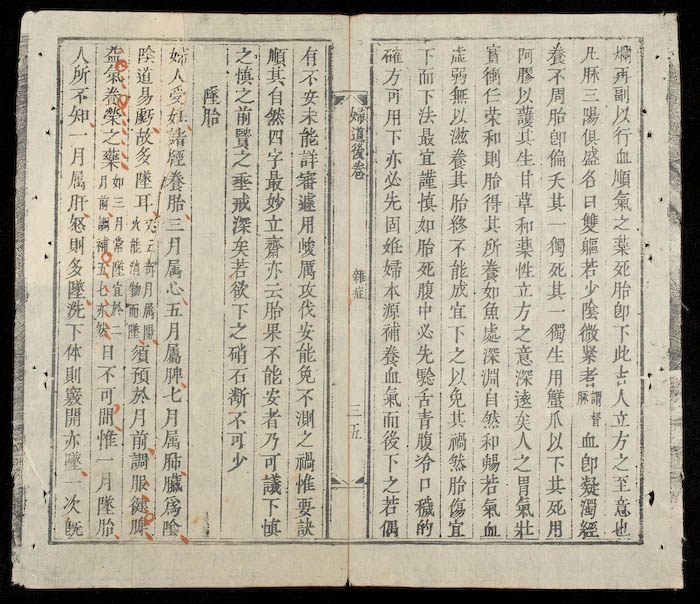 爛再副以行血順氣之藥死胎卽下此古人立方之至意也
凡脉三陽俱盛名曰雙軀若少陰微緊者謂督脉血卽凝濁經
養不周胎卽偏夭其一獨死其一獨生用蟹爪以下其死用
阿膠以護其生甘草和藥性立方之意深遠矣人之胃氣壯
實衝任榮和則胎得其所養如魚處深淵自然和暢若氣血
虛弱無以滋養其胎終不能成宜下之以免其禍然胎傷宜
下而下法最宜謹慎如胎死腹中必先騐舌青腹冷口穢的
確方可用下亦必先固妊婦本源補養血氣而後下之若偶
婦道後卷 雜症 三五
有不安未能詳審遽用峻厲攻伐安能免不測之禍惟要訣
順其自然四字最妙立齋亦云胎果不能安者乃可議下慎
之慎之前賢之垂戒深矣若欲下之硝石漸不可少
墜胎
婦人受姙諸經養胎三月属心五月属脾七月属肺臟爲陰
陰道易虧故多墜耳五奇月属陽火能消物而墜須預於月前調服健脾
益氣養榮之藥如三月常墜宜於二月前調補五七亦然日不可間惟一月墜胎
人所不知一月属肝怒則多墜洗下体則竅開亦墜一次旣